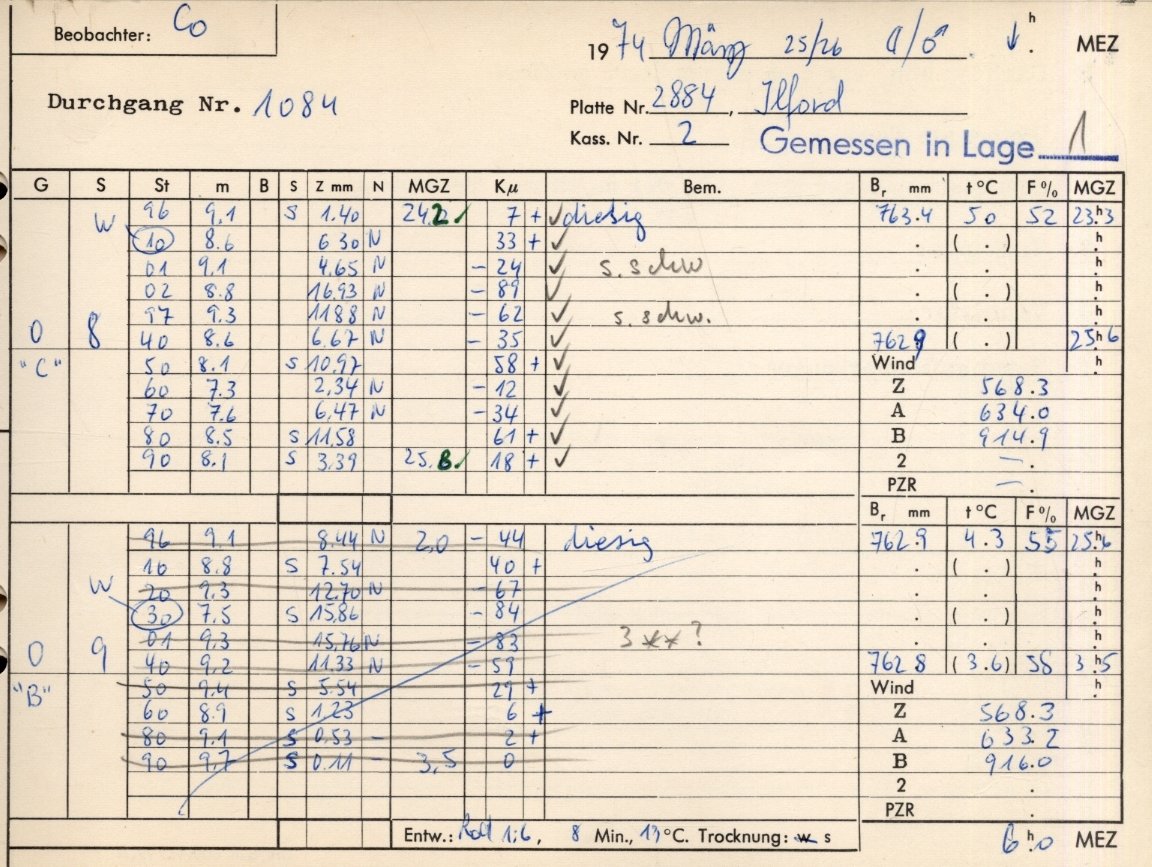 Beobachter: Co
1974 März 25/26 h MEZ
Durchgang Nr. 1084
Platte Nr. 2884, Ilford
Kass. Nr. 2
Gemessen in Lage 1
G S St m B S Z mm N MGZ Kμ Bem. Br mm t °C F % MGZ
W 96 9.1 S 1.40 24.2 7 + ✓ diesig 763.4 5.0 52 23.h3
10 8.6 6.30 N 33 + ✓ . ( . ) . h
01 9.1 4.65 N - 24 ✓ s. schw . . h
02 8.8 16.93 N - 89 ✓ . ( . ) . h
97 9.3 11.88 N - 62 ✓ s. schw. . . h
0 8 40 8.6 6.67 N - 35 ✓ 762.9 ( . ) 25.h6
"C" 50 8.1 S 10.97 58 + ✓ Wind h
60 7.3 2.34 N - 12 ✓ Z 568.3
70 7.6 6.47 N - 34 ✓ A 634.0
80 8.5 S 11.58 61 + ✓ B 914.9
90 8.1 S 3.39 25.8 18 + ✓ 2 – .
PZR – .
Br mm t °C F % MGZ
96 9.1 8.44 N 2.0 - 44 diesig 762.9 4.3 55 25.h6
10 8.8 S 7.54 40 + . ( . ) . h
W 20 9.3 12.70 N - 67 . . h
30 7.5 S 15.86 - 84 . ( . ) . h
01 9.3 15.76 N - 83 3 ** ? . . h
0 9 40 9.2 11.33 N - 59 762.8 (3.6) 58 3.h5
"B" 50 9.4 S 5.54 29 + Wind h
60 8.9 S 1.23 6 + Z 568.3
80 9.1 S 0.53 - 2 + A 633.2
90 9.7 S 0.11 - 3.5 0 B 916.0
2 .
PZR .
Entw.: Rod 1:6, 8 Min., 19 °C. Trocknung: w s
6 h.0 MEZ